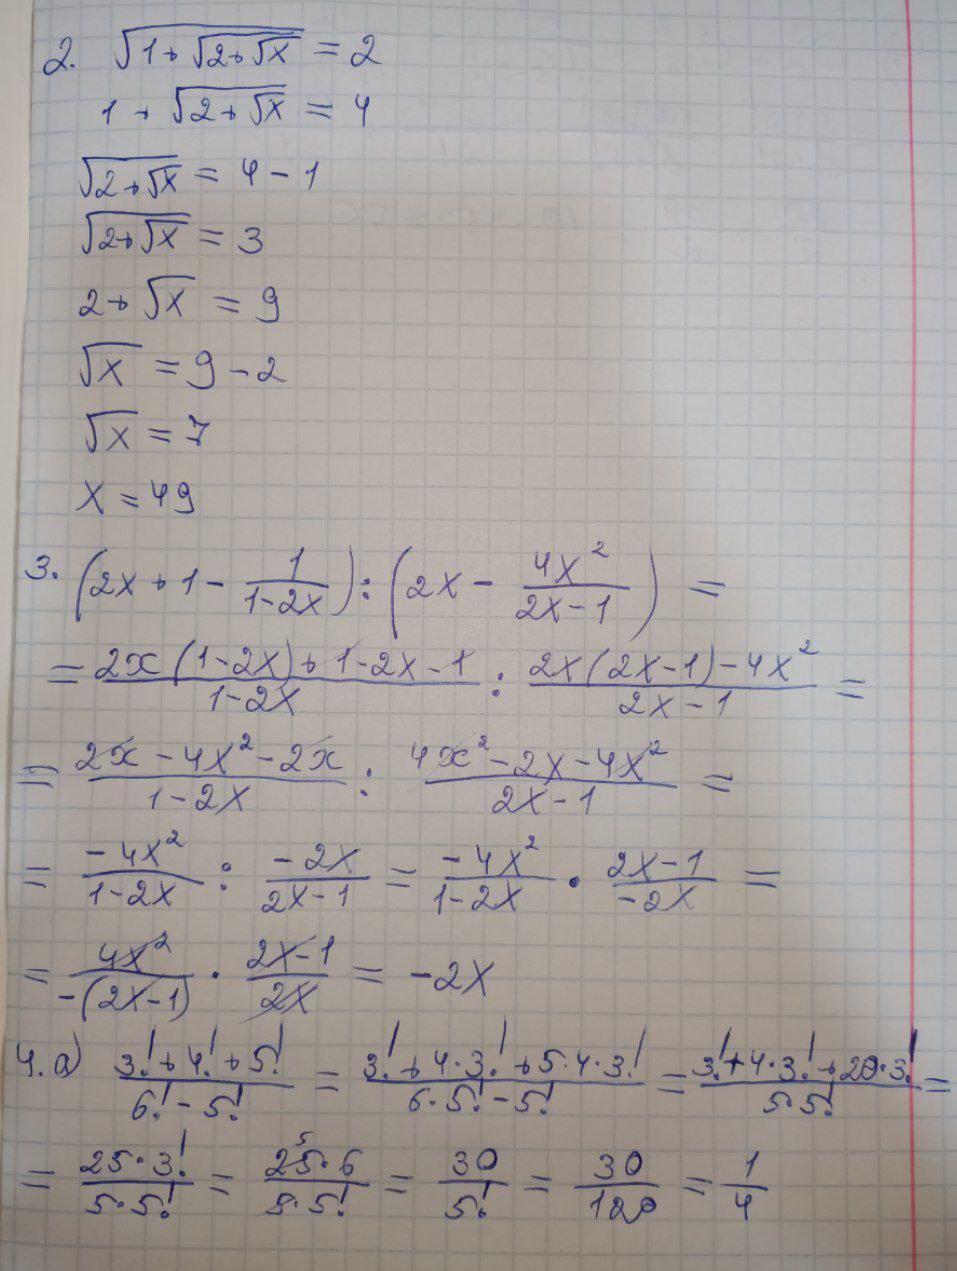 2. √(1+√(2+√x)) = 2
1 + √(2+√x) = 4
√(2+√x) = 4 - 1
√(2+√x) = 3
2 + √x = 9
√x = 9 - 2
√x = 7
x = 49
3. (2x + 1 - 1/(1-2x)) : (2x - 4x²/(2x-1)) =
= (2x(1-2x) + 1-2x-1)/(1-2x) : (2x(2x-1)-4x²)/(2x-1) =
= (2x - 4x² - 2x)/(1-2x) : (4x² - 2x - 4x²)/(2x-1) =
= (-4x²)/(1-2x) : (-2x)/(2x-1) = (-4x²)/(1-2x) · (2x-1)/(-2x) =
= 4x²/(-(2x-1)) · (2x-1)/(2x) = -2x
4. a) (3! + 4! + 5!)/(6! - 5!) = (3! + 4·3! + 5·4·3!)/(6·5! - 5!) = (3! + 4·3! + 20·3!)/(5·5!) =
= (25·3!)/(5·5!) = (25·6)/(5·5!) = 30/5! = 30/120 = 1/4